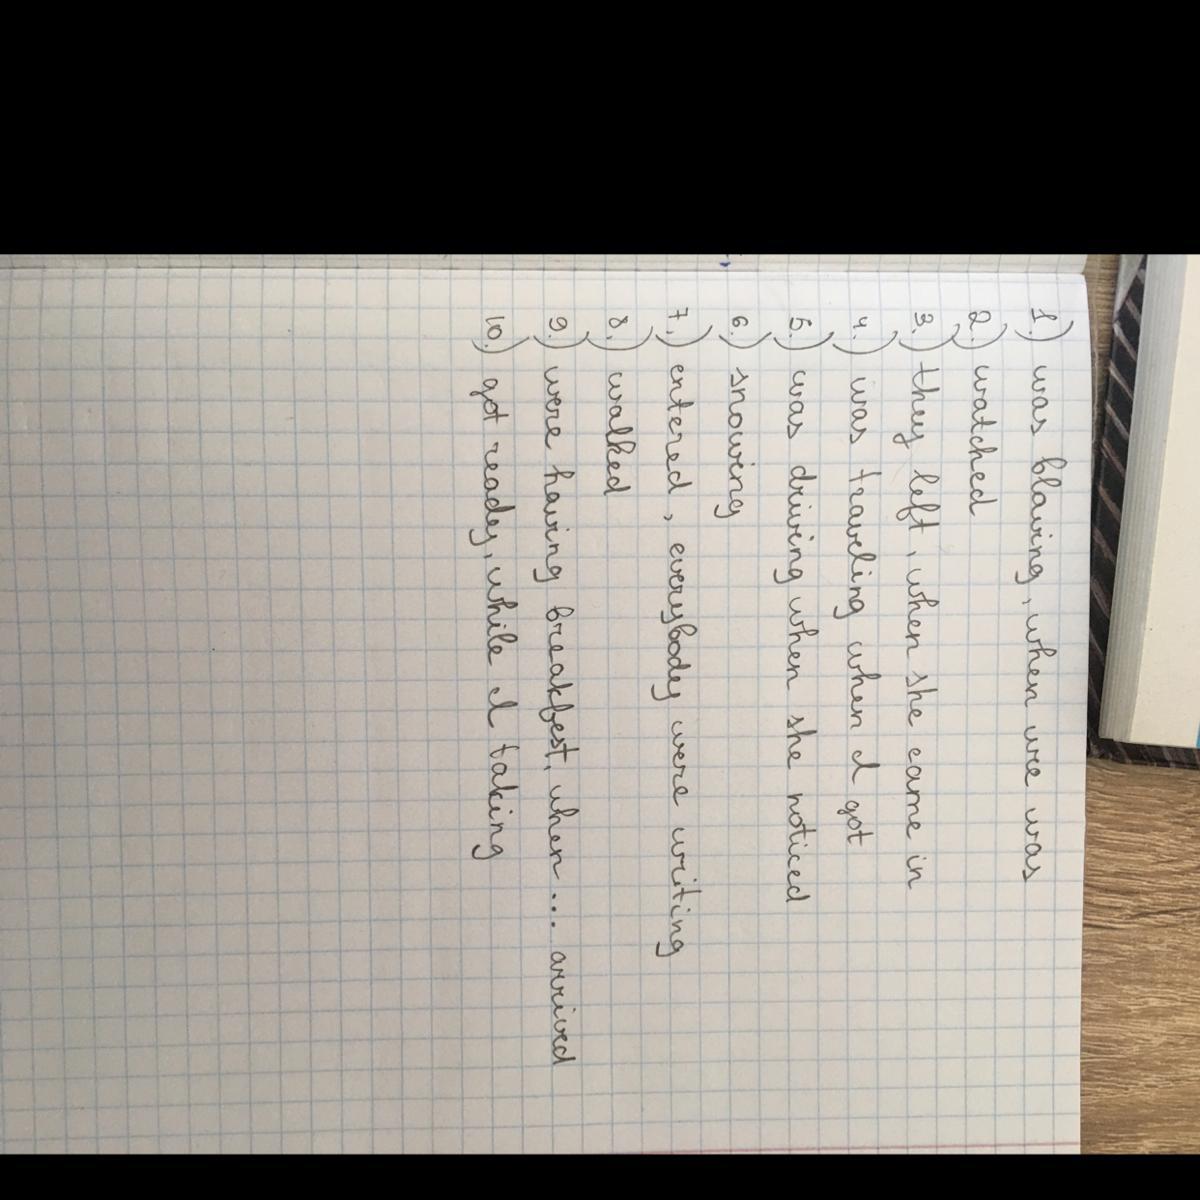 1.) was blaving, when we was
2.) watched
3.) they left, when she came in
4.) was traveling when I got
5.) was driving when she noticed
6.) snowing
7.) entered, everybody were writing
8.) walked
9.) were having breakfest, when ... arrived
10.) got ready, while I taking